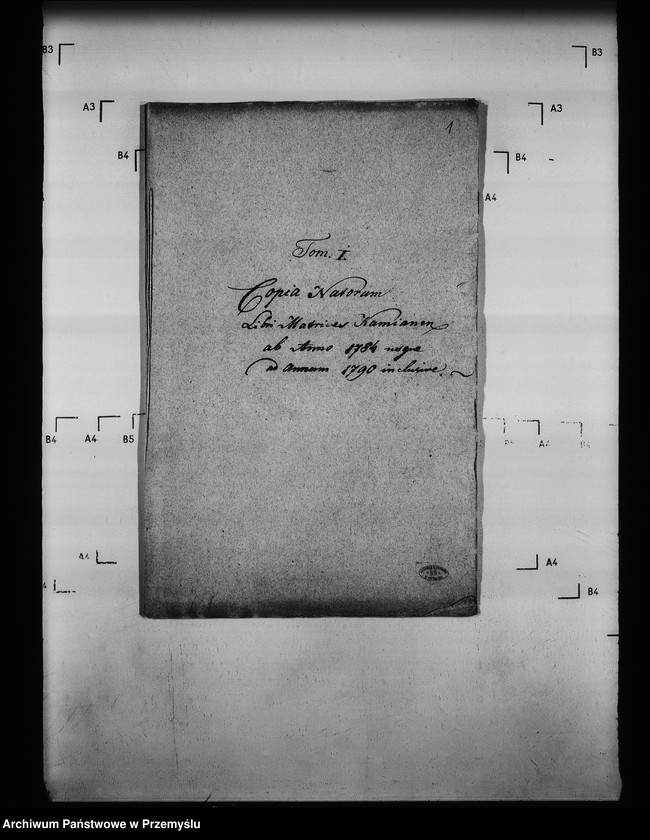 B3
B3
A3
A3
B4
B4
A4
1
Tom. I.
Copia Natorum
Libri Matrices Kamianen
ab Anno 1784 usque
ad Annum 1790 inclusive.
B4
A4
B5
A4
B4
A4
A4
B4
Archiwum Państwowe w Przemyślu